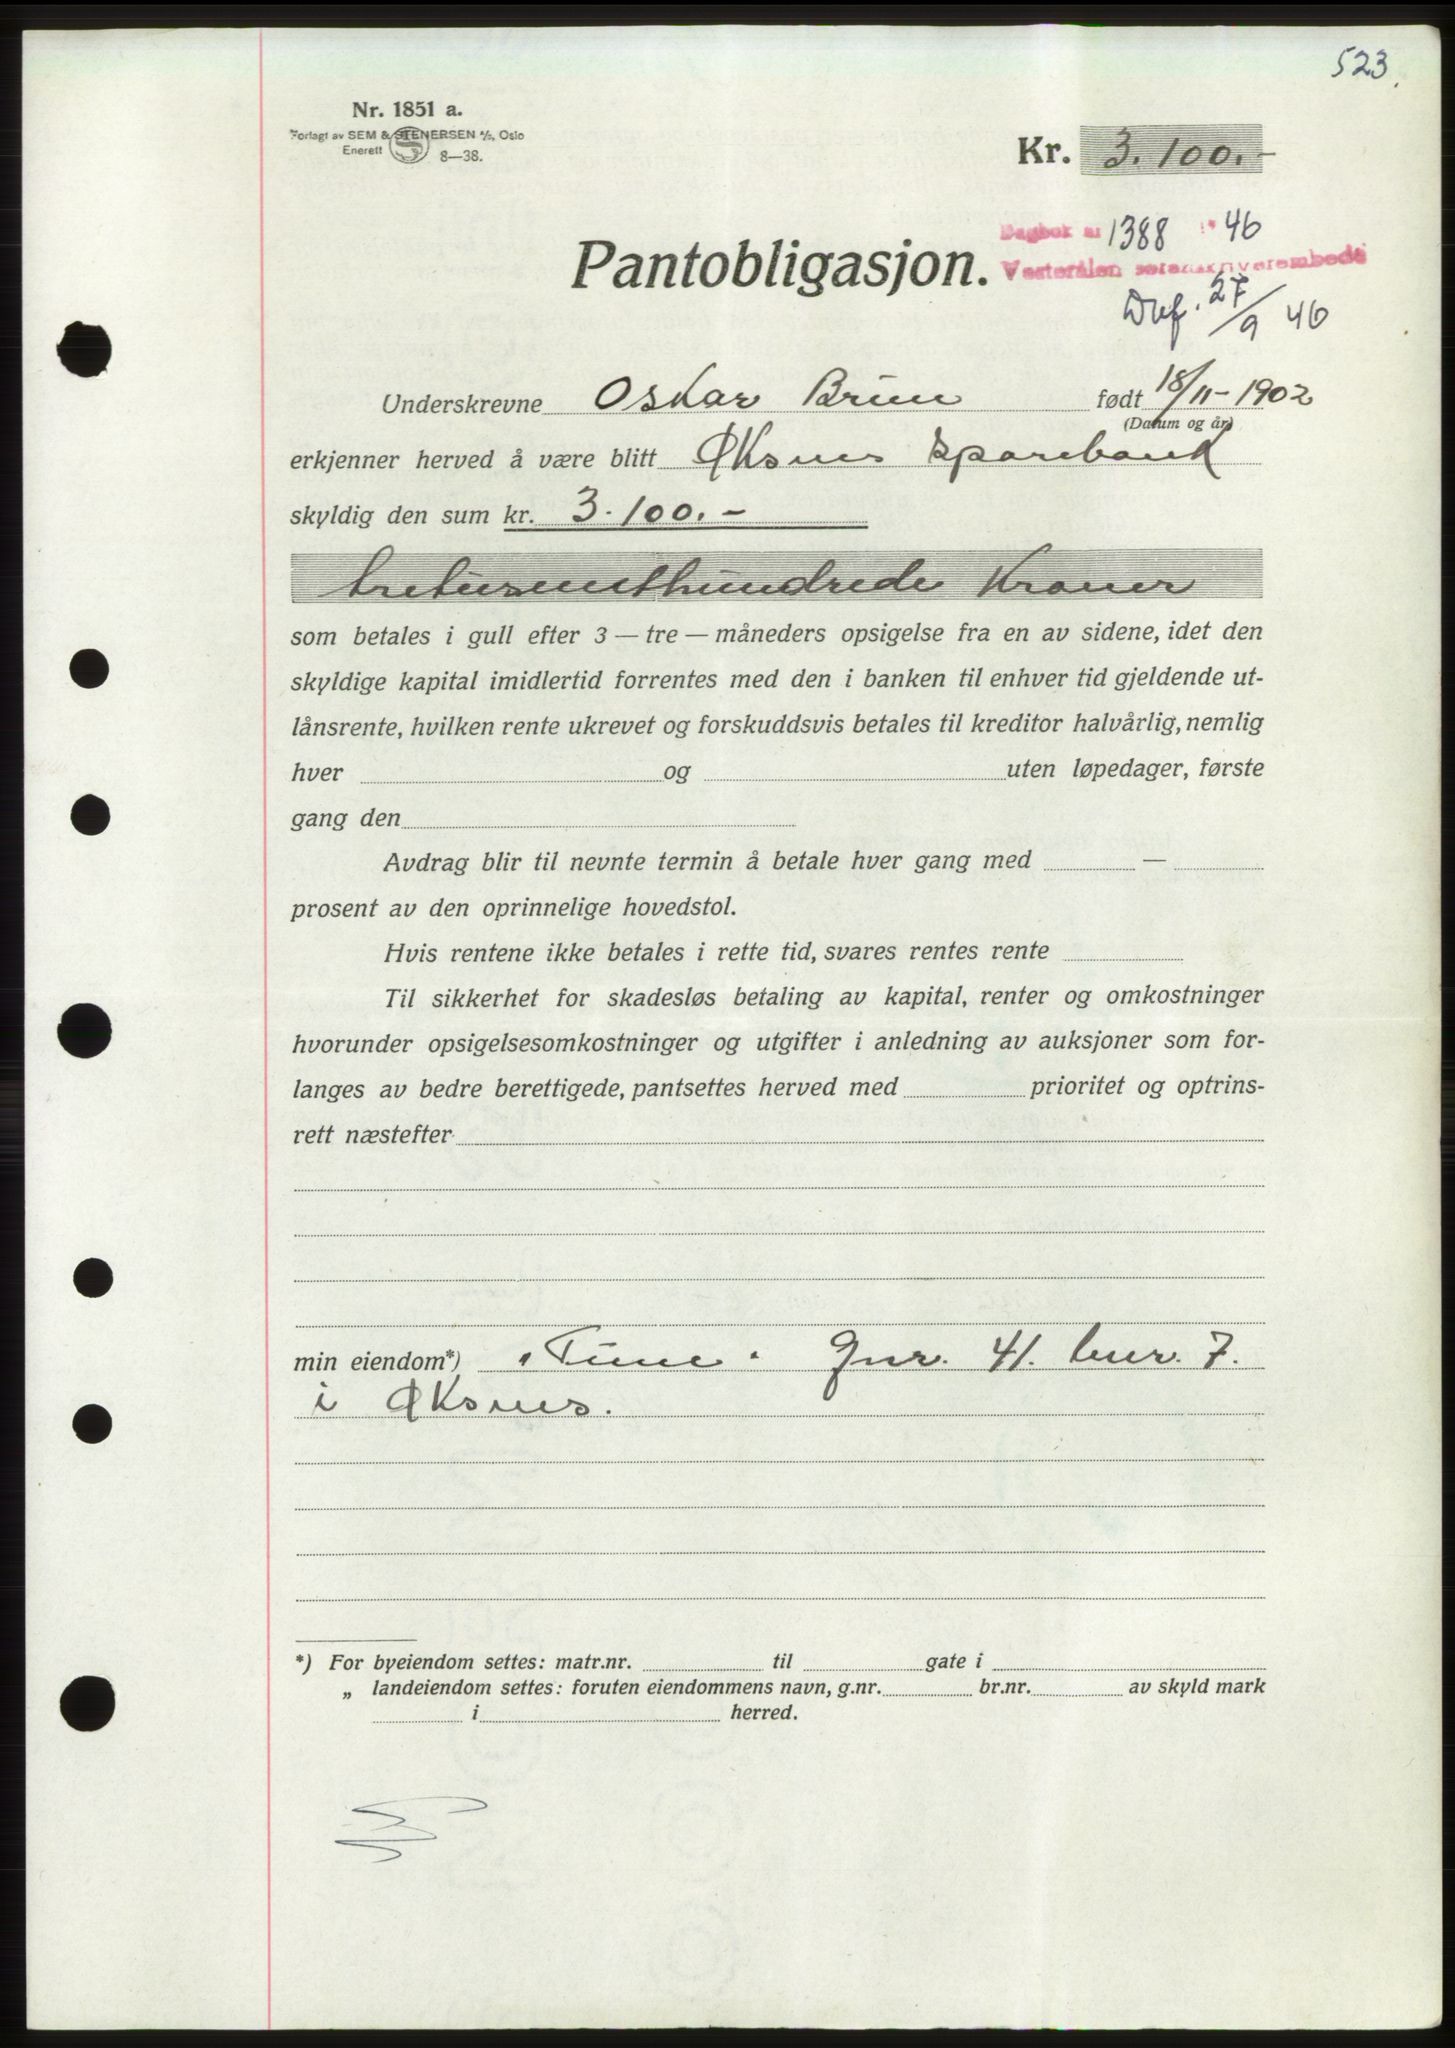 523.
Nr. 1851 a.
Forlagt av SEM & STENERSEN A/S, Oslo
Enerett 8—38.
Kr. 3.100.-
Dagbok nr 1388 19 46
Vesterålen sorenskriverembede
Pantobligasjon.
27/9 46
Underskrevne Oskar Brun født 18/11-1902
(Datum og år)
erkjenner herved å være blitt Øksnes Sparebank
skyldig den sum kr. 3.100.-
tretusenethundrede Kroner
som betales i gull efter 3 — tre — måneders opsigelse fra en av sidene, idet den
skyldige kapital imidlertid forrentes med den i banken til enhver tid gjeldende ut-
lånsrente, hvilken rente ukrevet og forskuddsvis betales til kreditor halvårlig, nemlig
hver og uten løpedager, første
gang den
Avdrag blir til nevnte termin å betale hver gang med —
prosent av den oprinnelige hovedstol.
Hvis rentene ikke betales i rette tid, svares rentes rente
Til sikkerhet for skadesløs betaling av kapital, renter og omkostninger
hvorunder opsigelsesomkostninger og utgifter i anledning av auksjoner som for-
langes av bedre berettigede, pantsettes herved med prioritet og optrins-
rett næstefter
min eiendom*) "Tune" Gnr. 41. bnr. 7.
i Øksnes.
*) For byeiendom settes: matr.nr. til gate i
„ landeiendom settes: foruten eiendommens navn, g.nr. br.nr. av skyld mark
i herred.